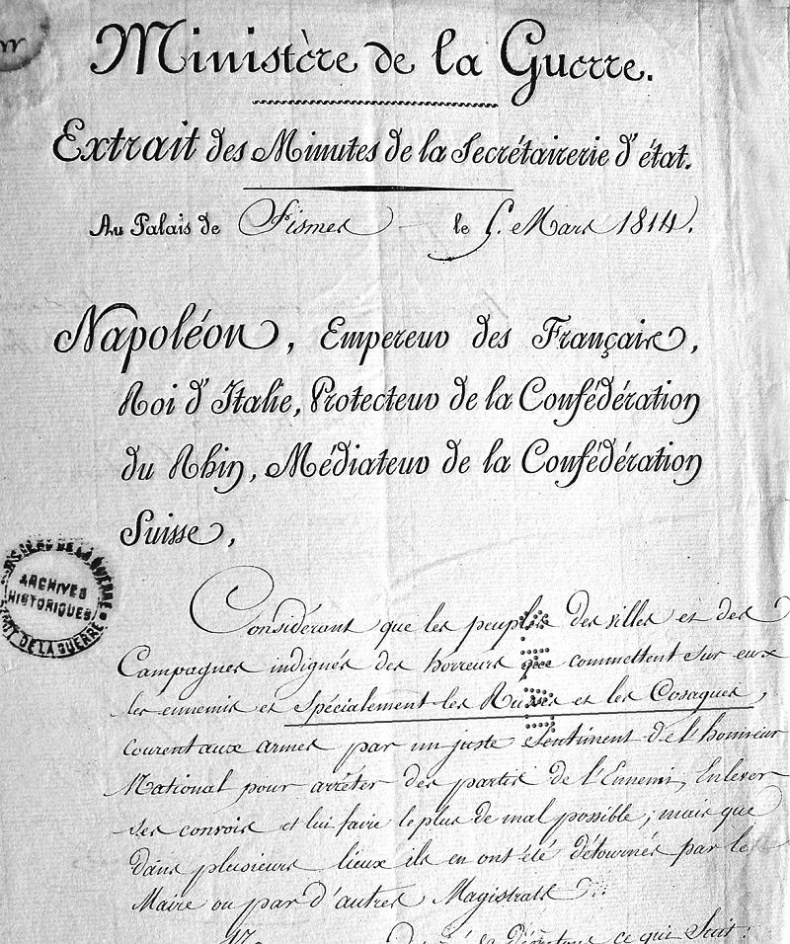 Ministère de la Guerre.
Extrait des Minutes de la Secrétairerie d'état.
Au Palais de Fismes le 5. Mars 1814.
Napoléon, Empereur des Français,
Roi d'Italie, Protecteur de la Confédération
du Rhin, Médiateur de la Confédération
Suisse,
ARCHIVES
HISTORIQUES
DE LA GUERRE
Considérant que les peuples des villes et des
Campagnes indignés des horreurs que commettent sur eux
les ennemis et spécialement les Russes et les Cosaques,
courent aux armes par un juste sentiment de l'honneur
National pour arrêter des partis de l'Ennemi, Enlever
ses convois et lui faire le plus de mal possible; mais que
dans plusieurs lieux ils en ont été détournés par le
Maire ou par d'autres Magistrats
ce qui Suit: